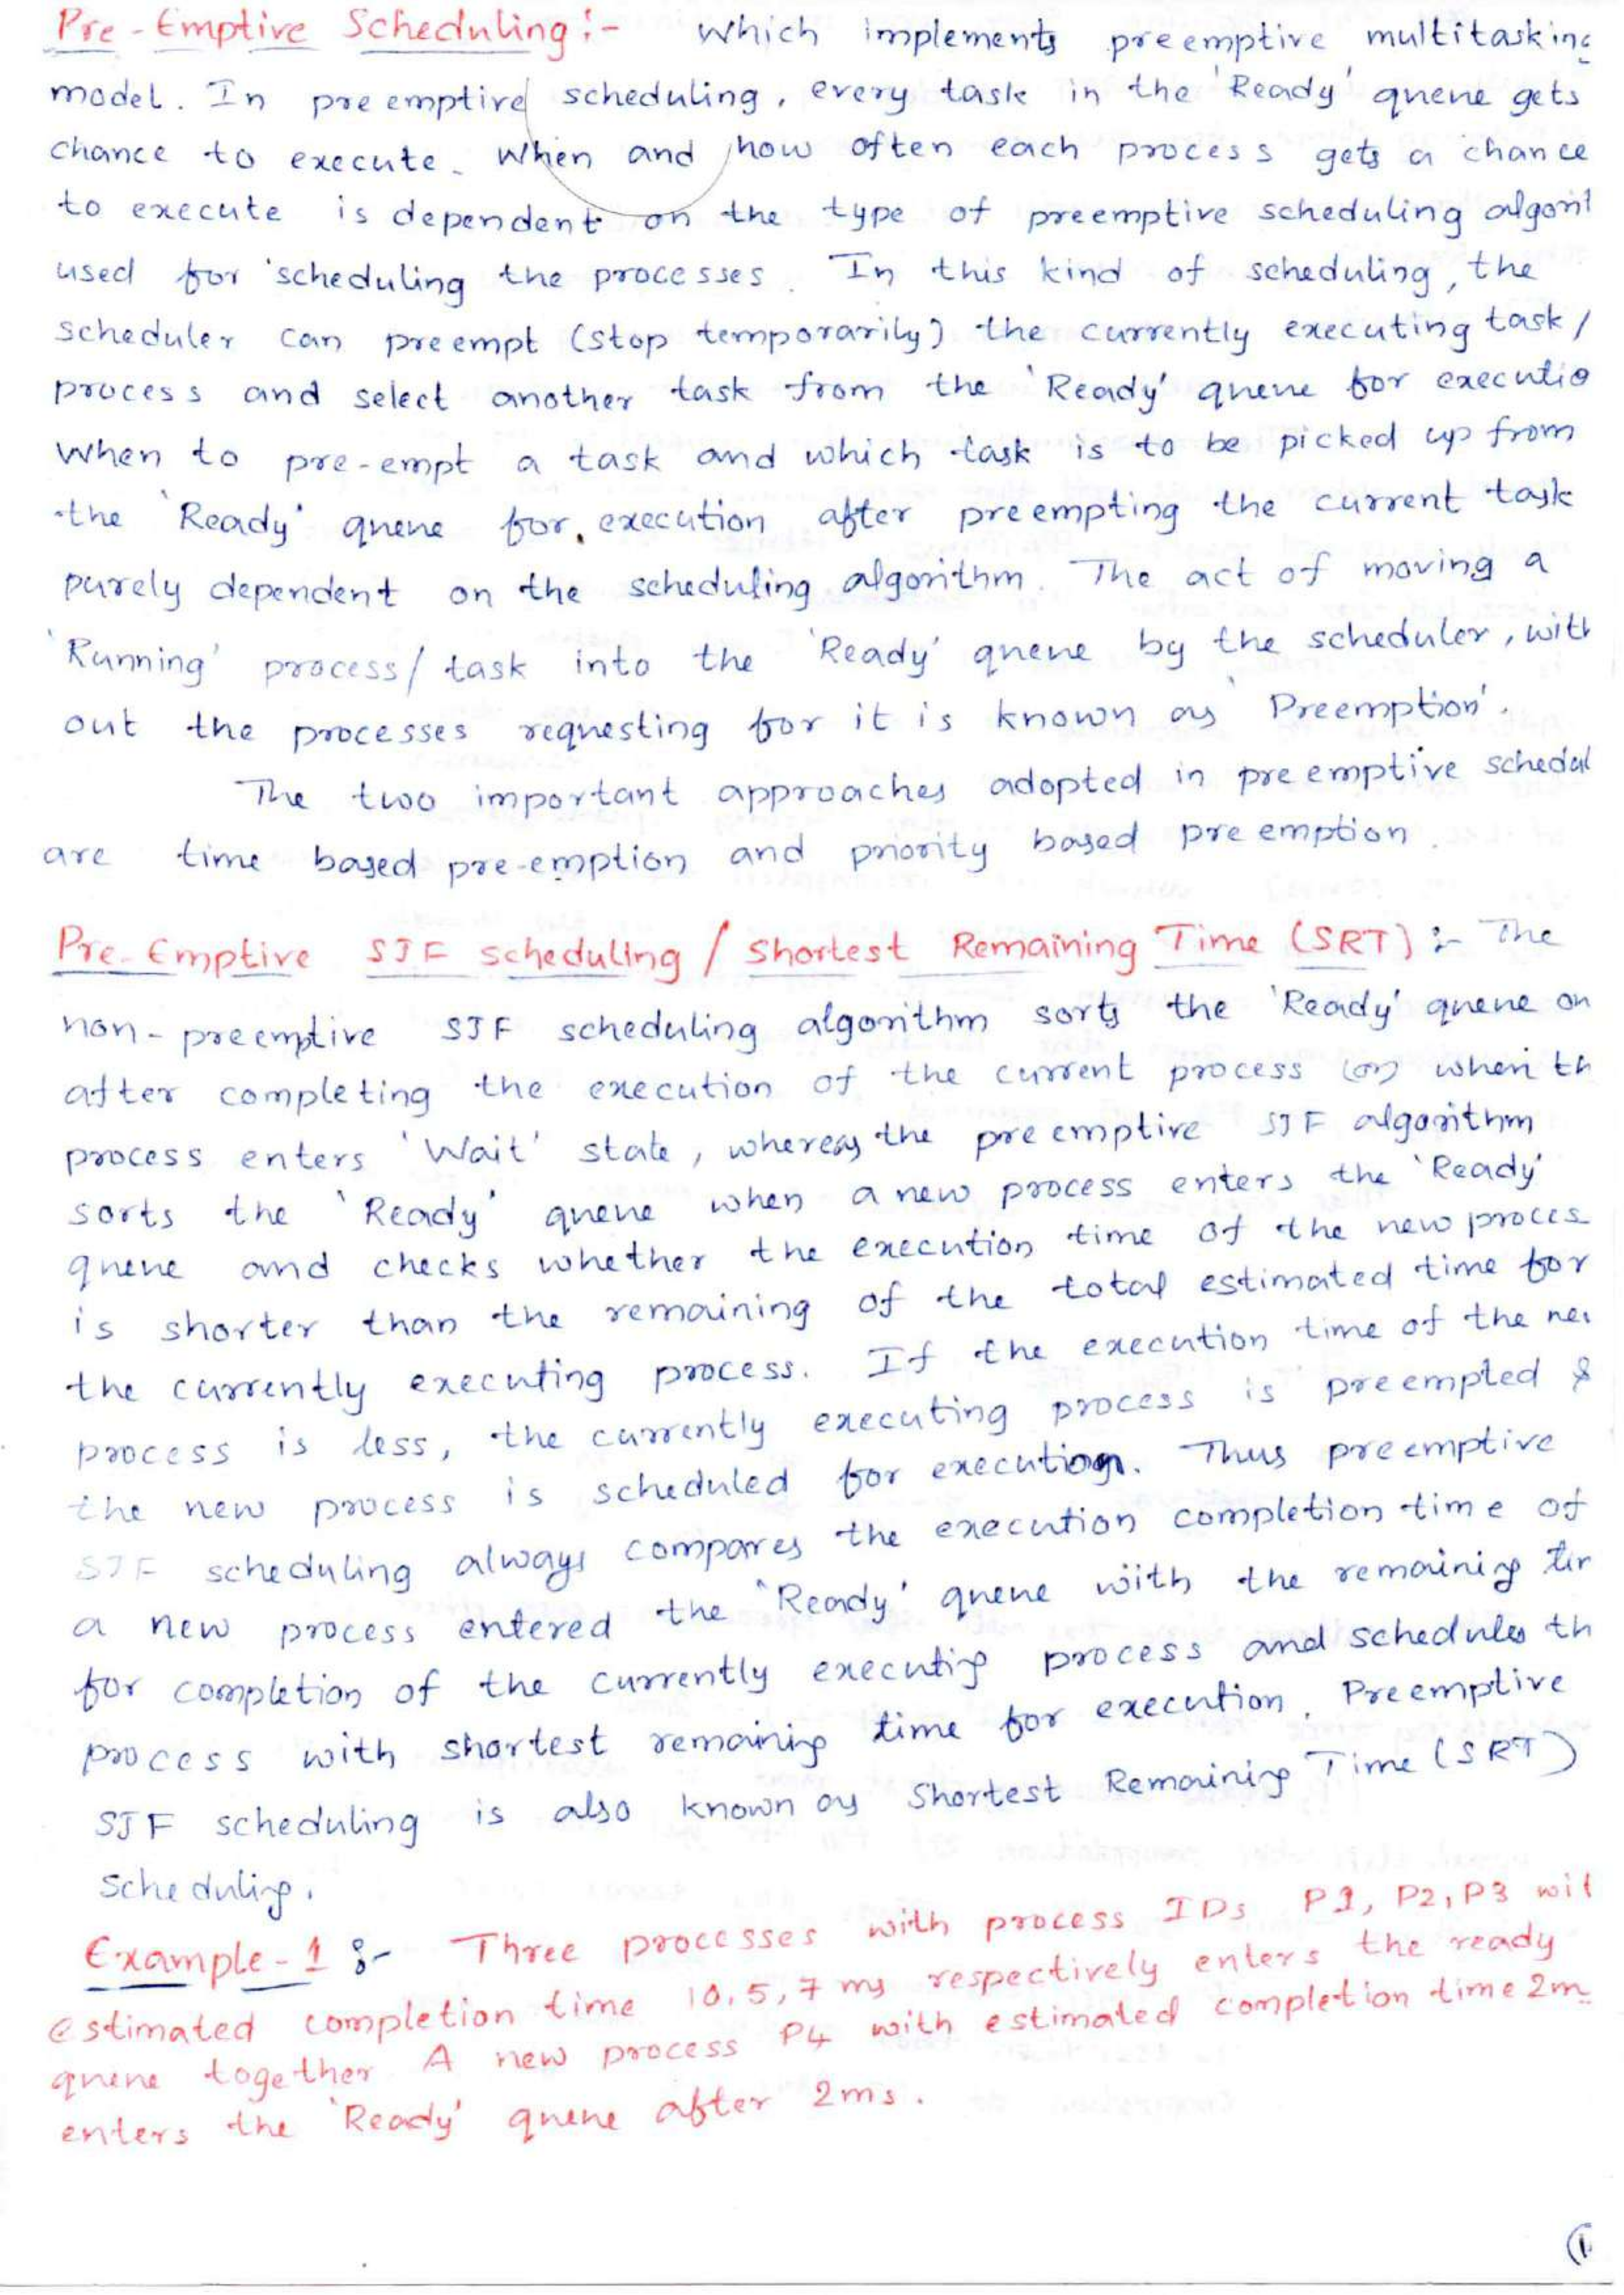 Pre-Emptive Scheduling :- Which implements preemptive multitasking
model. In preemptive scheduling, every task in the 'Ready' queue gets
chance to execute. When and how often each process gets a chance
to execute is dependent on the type of preemptive scheduling algorit
used for scheduling the processes. In this kind of scheduling, the
scheduler can preempt (stop temporarily) the currently executing task/
process and select another task from the 'Ready' queue for executio
When to pre-empt a task and which task is to be picked up from
the 'Ready' queue for execution after preempting the current task
purely dependent on the scheduling algorithm. The act of moving a
'Running' process/task into the 'Ready' queue by the scheduler, with
out the processes requesting for it is known as 'Preemption'.
The two important approaches adopted in preemptive schedul
are time based pre-emption and priority based preemption.
Pre-Emptive SJF scheduling / Shortest Remaining Time (SRT) :- The
non-preemptive SJF scheduling algorithm sorts the 'Ready' queue on
after completing the execution of the current process (or) when th
process enters 'Wait' state, whereas the preemptive SJF algorithm
sorts the 'Ready' queue when a new process enters the 'Ready'
queue and checks whether the execution time of the new proces
is shorter than the remaining of the total estimated time for
the currently executing process. If the execution time of the ne
process is less, the currently executing process is preempted &
the new process is scheduled for execution. Thus preemptive
SJF scheduling always compares the execution completion time of
a new process entered the 'Ready' queue with the remaining tim
for completion of the currently executing process and schedules th
process with shortest remaining time for execution. Preemptive
SJF scheduling is also known as Shortest Remaining Time (SRT)
Scheduling.
Example-1 :- Three processes with process IDs P1, P2, P3 wit
estimated completion time 10, 5, 7 ms respectively enters the ready
queue together. A new process P4 with estimated completion time 2m
enters the 'Ready' queue after 2ms.
1